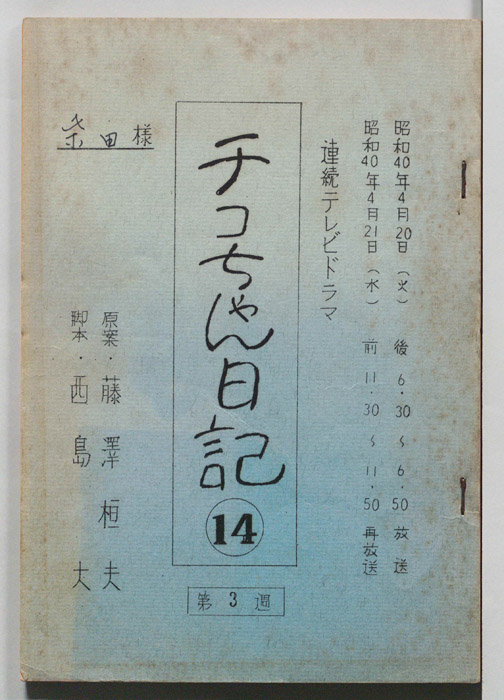 昭和40年4月20日(火) 後6.30〜6.50放送
昭和40年4月21日(水) 前11.30〜11.50再放送
連続テレビドラマ
チコちゃん日記
14
第3週
原案・藤澤桓夫
脚本・西島大
柴田様